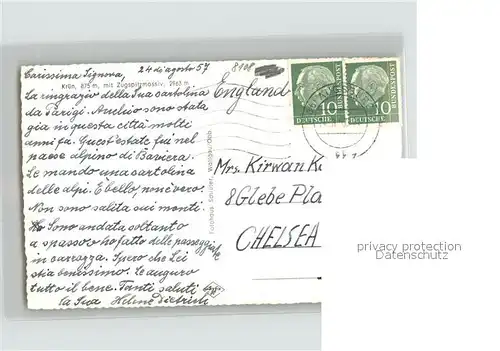 24 di agosto 57
8108
Carissima Signora,
Krün, 875 m, mit Zugspitzmassiv, 2963 m
La ringrazio della Sua cartolina
da Parigi. Anch'io sono stata
già in questa città molti
anni fa. Quest'estate fui nel
paese alpino di Baviera.
Le mando una cartolina
delle alpi. E bello, non è vero?
Non sono salita sui monti.
Sono andata soltanto
a spasso ho fatto delle passeggiate
in carrozza. Spero che Lei
stia benissimo. Le auguro
tutto il bene. Tanti saluti
la Sua Helene Dietrich
England
10 10
DEUTSCHE DEUTSCHE
BUNDESPOST BUNDESPOST
Mrs. Kirwan
8 Glebe Pla
CHELSEA
privacy protection
Datenschutz